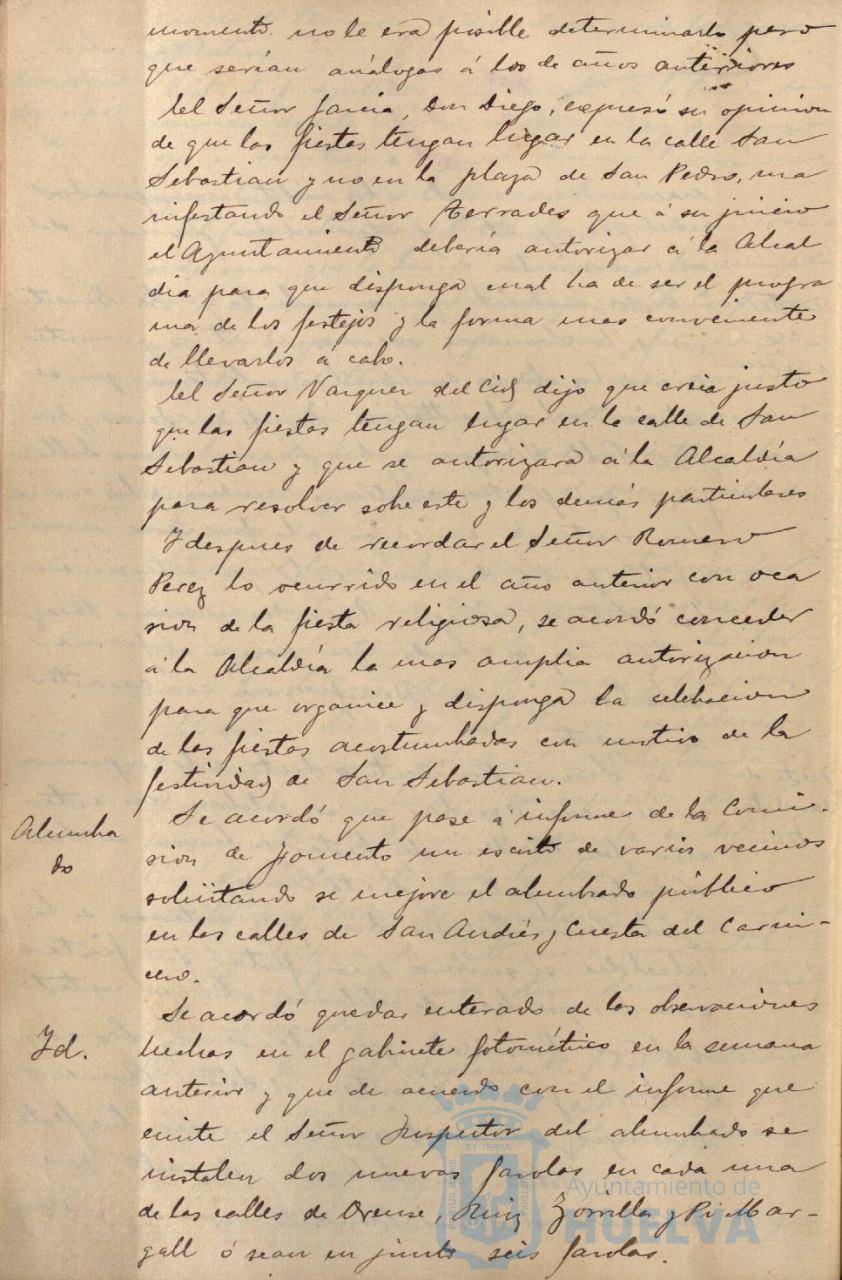 momento no le era posible determinarlo pero
que serían análogas á los de años anteriores
El Señor García, Don Diego, expresó su opinion
de que las fiestas tengan lugar en la calle San
Sebastian y no en la plaza de San Pedro, ma
nifestando el Señor Terrades que á su juicio
el Ayuntamiento debería autorizar á la Alcal
dia para que disponga cual ha de ser el progra
ma de los festejos y la forma mas conveniente
de llevarlos á cabo.
El Señor Vazquez del Cid dijo que creia justo
que las fiestas tengan lugar en la calle de San
Sebastian y que se autorizara á la Alcaldía
para resolver sobre este y los demás particulares
Y despues de recordar el Señor Romero
Perez lo ocurrido en el año anterior con oca
sion de la fiesta religiosa, se acordó conceder
á la Alcaldía la mas amplia autorizacion
para que organice y disponga la celebracion
de las fiestas acostumbradas con motivo de la
festividad de San Sebastian.
Alumbra
do
Se acordó que pase á informe de la Comi-
sion de Fomento un escrito de varios vecinos
solicitando se mejore el alumbrado público
en las calles de San Andrés y Cuesta del Carni-
cero.
Id.
Se acordó quedar enterado de las observaciones
hechas en el gabinete fotométrico en la semana
anterior y que de acuerdo con el informe que
emite el Señor Inspector del alumbrado se
instalen dos nuevas farolas en cada una
de las calles de Orense, Ruiz Zorrilla y Pi Mar-
gall ó sean en junto seis farolas.
Ayuntamiento de
HUELVA